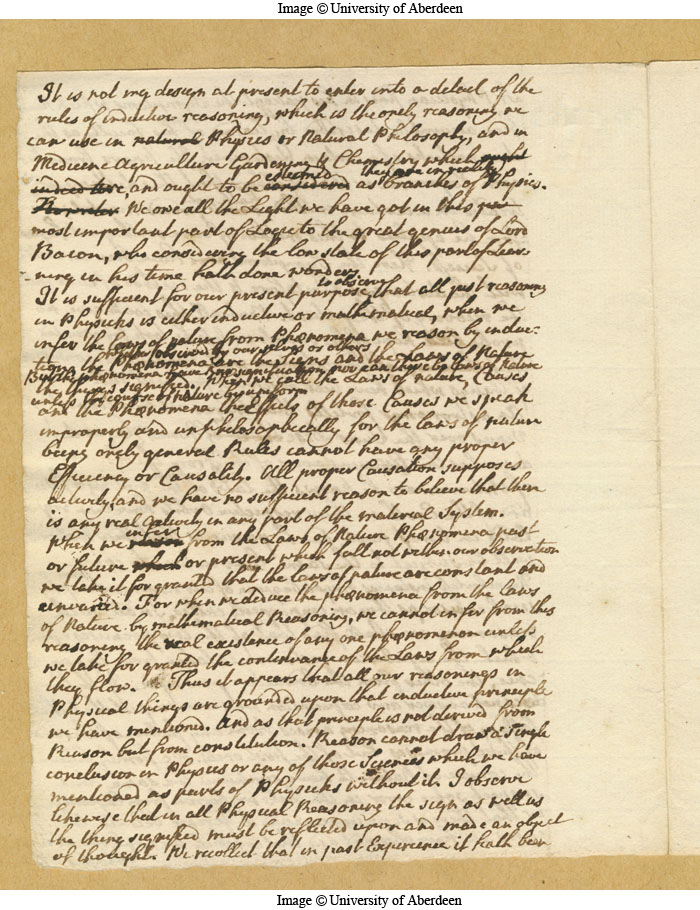 Image © University of Aberdeen
It is not my design at present to enter into a detail of the
rules of inductive reasoning, which is the onely reasoning we
can use in natural Physics or Natural Philosophy, and in
Medicine Agriculture Gardening & Chemistry which ought
esteemed they are in reality
indeed are, and ought to be considered as branches of Physics.
We owe all the Light we have got in this
most important part of Logic to the great genius of Lord
Bacon, who considering the low state of this part of Lear
ning in his time hath done wonders.
to observe
It is sufficient for our present purpose that all just reasoning
in Physicks is either inductive or mathematical, when we
infer the laws of nature from Phænomena we reason by induc-
observed by our selves or others
tion the Phænomena are the signs and the Laws of Nature
But the phænomena have no signification nor can there be laws of nature
the things signified. When we call the Laws of nature, Causes
unless the course of nature be uniform
and the Phænomena the Effects of those Causes we speak
improperly and unphilosophically for the laws of nature
being onely general Rules cannot have any proper
Efficiency or Causality. All proper Causation supposes
activity and we have no sufficient reason to believe that there
is any real Activity in any part of the material System.
infer
When we reason from the Laws of Nature Phænomena past
or future which or present which fall not within our observation
we take it for granted that the laws of nature are constant and
unvaried. For when we deduce the phænomena from the laws
of Nature by mathematical Reasoning, we cannot infer from this
reasoning the real existence of any one phænomenon unless
we take for granted the continuance of the Laws from which
they flow. Thus it appears that all our reasonings in
Physical things are grounded upon that inductive principle
we have mentioned. And as that principle is not derived from
Reason but from constitution. Reason cannot draw a single
conclusion in Physics or any of those Sciences which we have
mentioned as parts of Physicks without it. I observe
likewise that in all Physical Reasoning the sign as well as
the thing signified must be reflected upon and made an object
of thought. We recollect that in past Experience it hath been
Image © University of Aberdeen